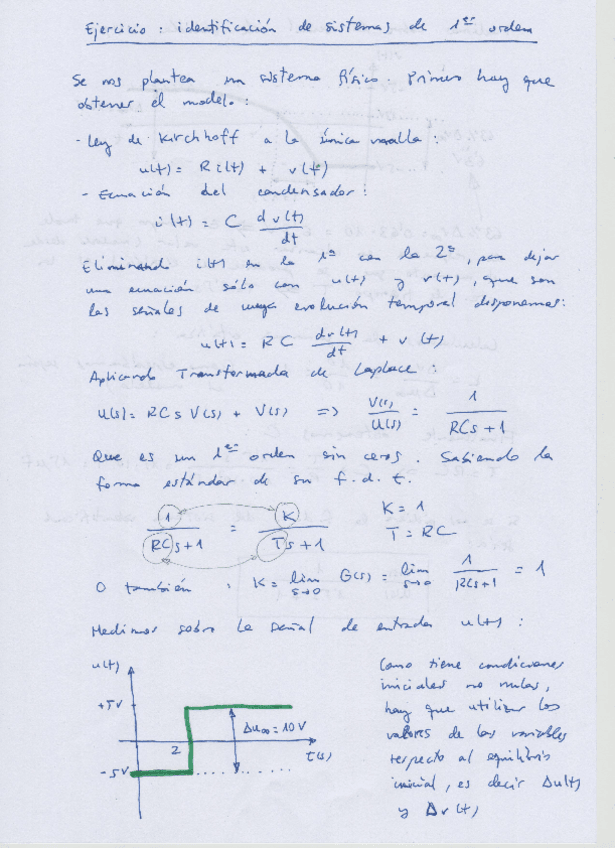 Ejercicio: identificación de sistemas de 1er orden
Se nos plantea un sistema físico. Primero hay que
obtener el modelo:
- Ley de Kirchhoff a la única malla:
u(t) = Ri(t) + v(t)
- Ecuación del condensador:
i(t) = C dv(t)/dt
Eliminando i(t) en la 1ª con la 2ª, para dejar
una ecuación sólo con u(t) y v(t), que son
las señales de cuya evolución temporal disponemos:
u(t) = RC dv(t)/dt + v(t)
Aplicando Transformada de Laplace:
U(s) = RCs V(s) + V(s) => V(s)/U(s) = 1/(RCs+1)
Que es un 1er orden sin ceros. Sabiendo la
forma estándar de su f.d.t.
1/(RCs+1) = K/(Ts+1)
K = 1
T = RC
O también: K = lim s→0 G(s) = lim s→0 1/(RCs+1) = 1
Medimos sobre la señal de entrada u(t):
u(t)
+5V
Δu∞ = 10V
2
t(s)
-5V
Como tiene condiciones
iniciales no nulas,
hay que utilizar los
valores de las variables
respecto al equilibrio
inicial, es decir Δu(t)
y Δv(t)